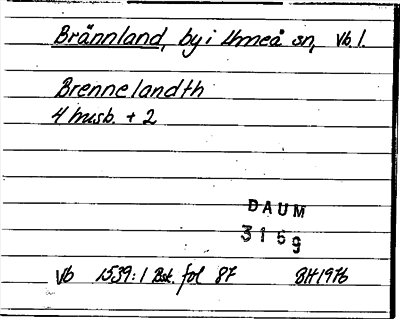 Brännland, by i Umeå sn, Vb.l.
Brennelandth
4 husb. + 2
DAUM
3169
Vb 1539:1 Bst. fol 87 BH1976